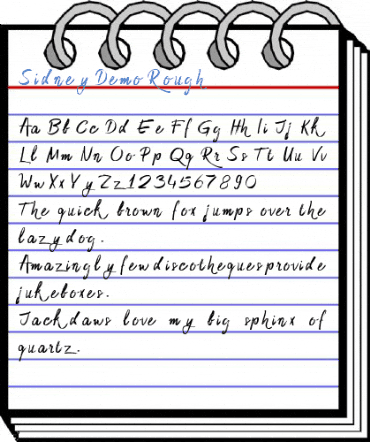 Sidney Demo Rough
Aa Bb Cc Dd Ee Ff Gg Hh Ii Jj Kk
Ll Mm Nn Oo Pp Qq Rr Ss Tt Uu Vv
Ww Xx Yy Zz 1234567890
The quick brown fox jumps over the
lazy dog.
Amazingly few discotheques provide
jukeboxes.
Jackdaws love my big sphinx of
quartz.